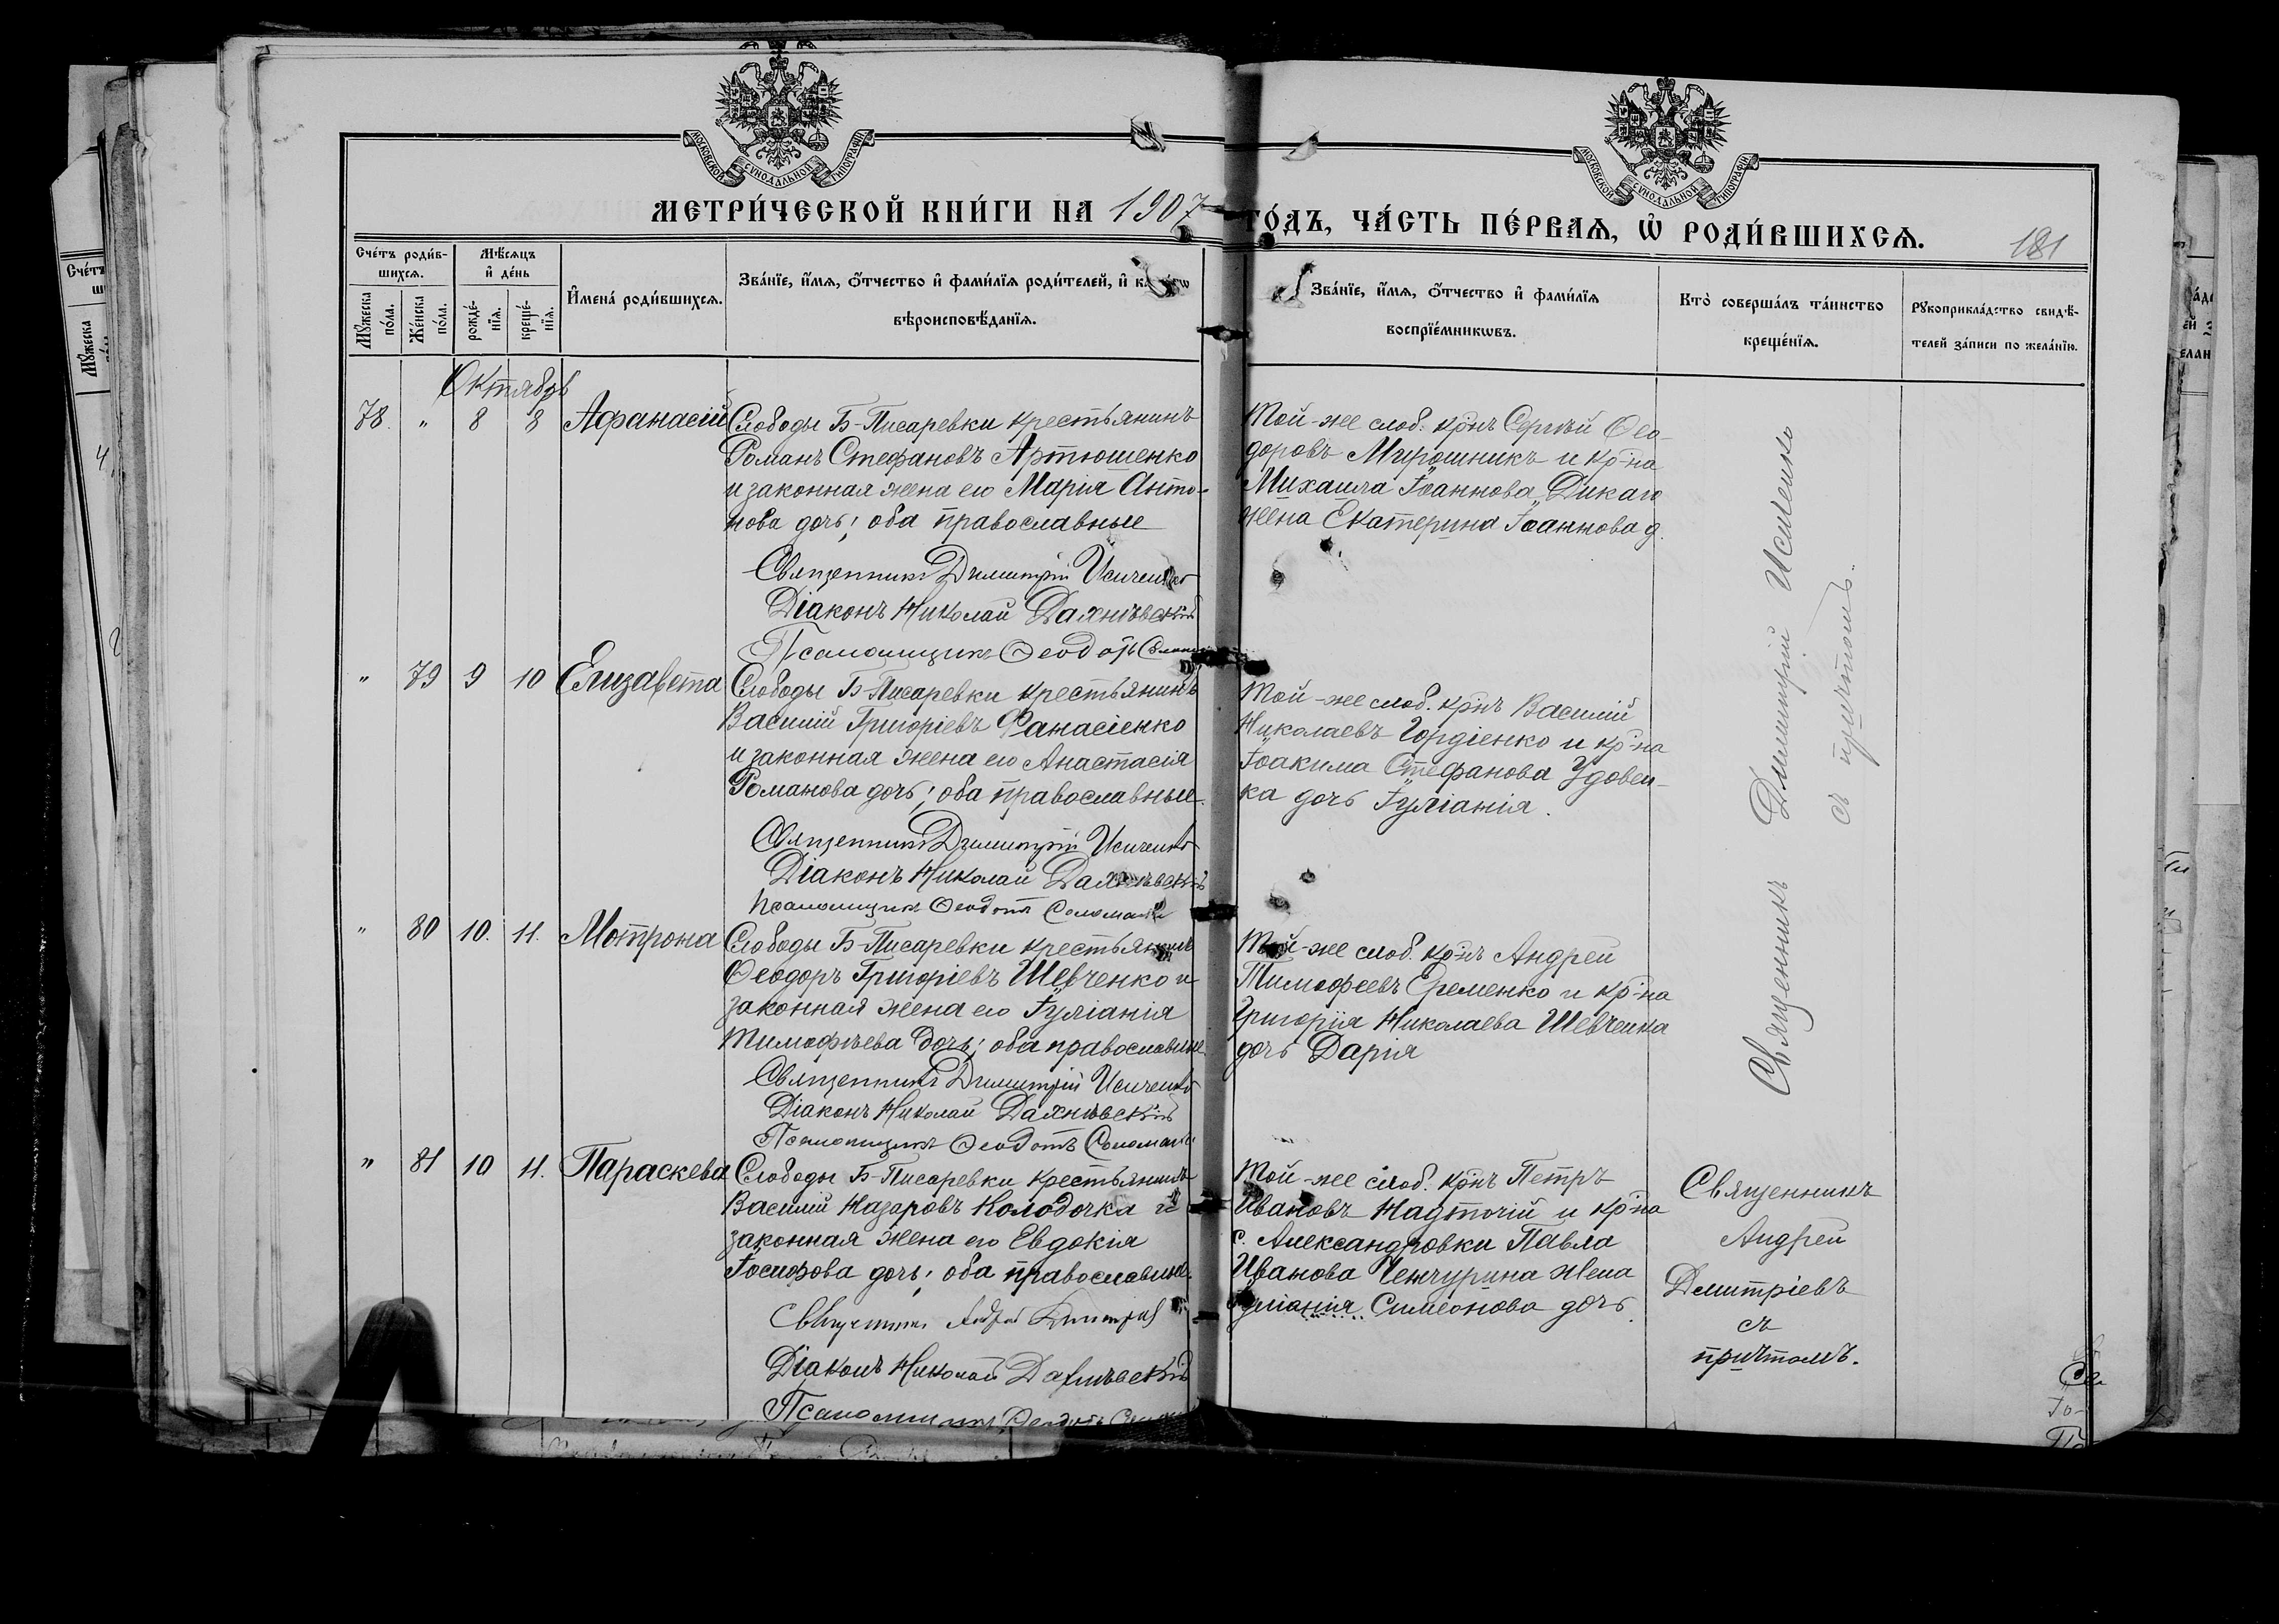 МОСКОВСКОЙ СѴНОДАЛЬНОЙ ТИПОГРАФІИ
МОСКОВСКОЙ СѴНОДАЛЬНОЙ ТИПОГРАФІИ
МЕТРИ́ЧЕСКОЙ КНИ́ГИ НА 1907 ГО́ДЪ, ЧА́СТЬ ПЕ́РВАѦ, Ѡ҆ РОДИ́ВШИХСѦ.
181
Сче́тъ роди́в-
шихсѧ.
Мꙋ́жеска по́ла.
Же́нска по́ла.
Мѣ́сѧцъ и҆ де́нь
рожде́-
нїѧ.
креще́-
нїѧ.
И҆мена̀ роди́вшихсѧ.
Зва́нїе, и҆́мѧ, ѻ҆́тчество и҆ фами́лїѧ роди́телей, и҆
вѣроисповѣ́данїѧ.
Зва́нїе, и҆́мѧ, ѻ҆́тчество и҆ фами́лїѧ
воспрїе́мникѡвъ.
Кто̀ соверша́лъ та́инство
креще́нїѧ.
Рꙋкоприкла́дство свидѣ́-
телей за́писи по жела́нїю.
Октябрь
78. " 8 8 Афанасій
Слободы Б-Писаревки крестьянинъ
Романъ Стефановъ Артюшенко
и законная жена его Марія Анто-
нова дочь; оба православные
Священникъ Димитрій Исиченко
Діаконъ Николай Дахнѣвскій
Псаломщикъ Ѳеодотъ
Той-же слоб. кр-нъ Сергѣй Ѳео-
доровъ Мирошникъ и кр-на
Михаила Іоаннова Дикаго
жена Екатерина Іоаннова д.
" 79 9 10 Елизавета
Слободы Б-Писаревки крестьянинъ
Василій Григоріевъ Фанасіенко
и законная жена его Анастасія
Романова дочь; оба православные.
Священникъ Димитрій Исиченко
Діаконъ Николай Дахнѣвскій
Псаломщикъ Ѳеодотъ
Той-же слоб. кр-нъ Василій
Николаевъ Гордіенко и кр-на
Іоакима Стефанова Удовен-
ка дочь Іуліанія.
" 80 10. 11. Мотрона
Слободы Б-Писаревки крестьянинъ
Ѳеодоръ Григоріевъ Шевченко и
законная жена его Іуліанія
Тимофѣева дочь; оба православные
Священникъ Димитрій Исиченко
Діаконъ Николай Дахнѣвскій
Псаломщикъ Ѳеодотъ
Той-же слоб. кр-нъ Андрей
Тимофеевъ Еременко и кр-на
Григорія Николаева Шевченка
дочь Дарія
Священникъ Димитрій Исиченко
съ причтомъ.
" 81 10 11. Параскева
Слободы Б-Писаревки крестьянинъ
Василій Назаровъ Колодочка и
законная жена его Евдокія
Іосифова дочь; оба православные.
Священникъ Андрей
Діаконъ Николай Дахнѣвскій
Псаломщикъ Ѳеодотъ
Той-же слоб. кр-нъ Петръ
Ивановъ Надточій и кр-на
с. Александровки Павла
Иванова Ченчурина жена
Іуліанія Симеонова дочь.
Священникъ
Андрей
Дмитріевъ
съ
причтомъ.